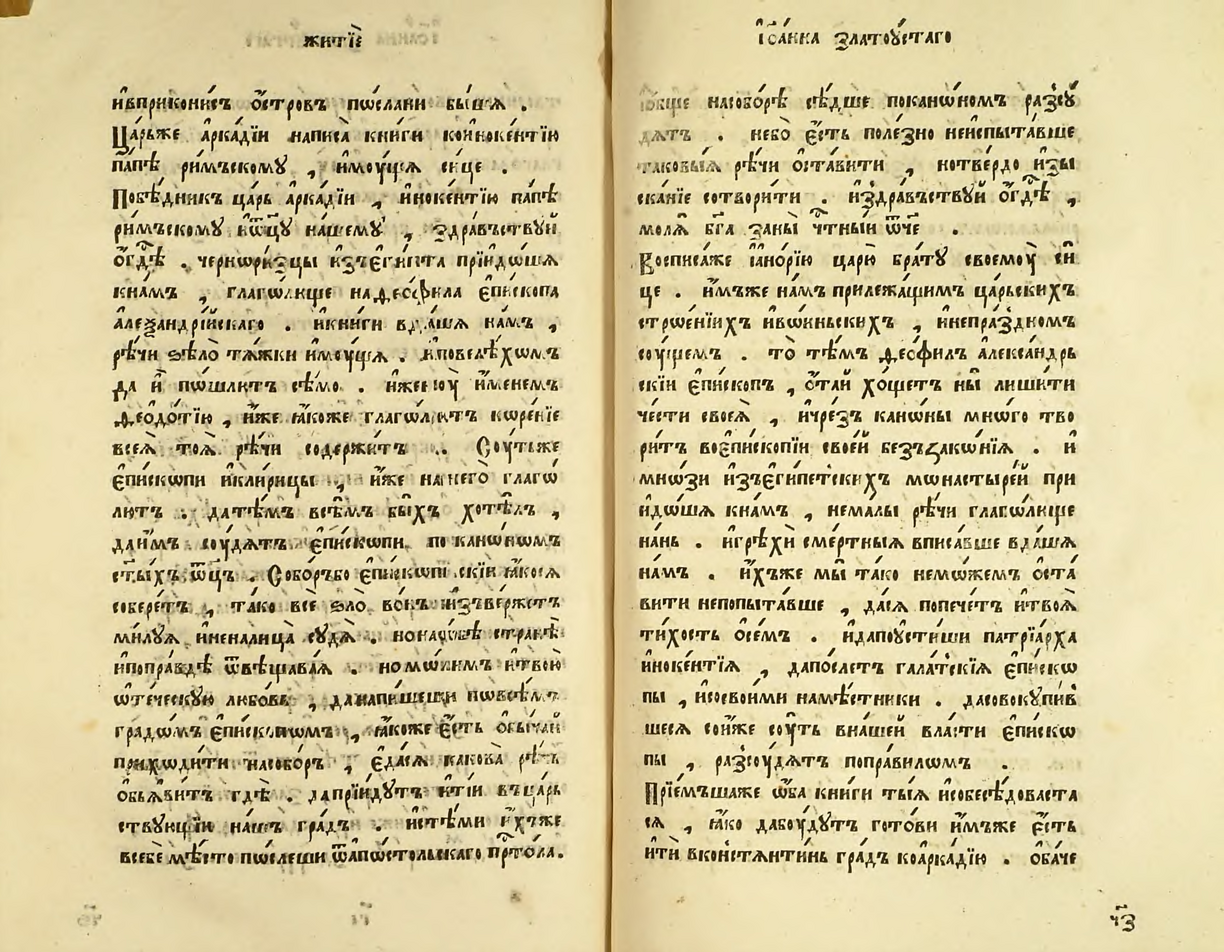 житїѐ
ивприконисъ ѻ҆стровъ пѡсланн бы́шѧ .
Царьже а҆рка́дїи написа̀ книги коинокен́тїю
па́пѣ римъскому , и҆моу́щѧ си́це .
Побѣ́дникъ царь а҆рка́дїи , и҆ноке́нтїю па́пѣ
ри́мъскому и҆ѿц҃у на́шему , здра́въствуи
ѻ҆гдⷭ҇ѣ . черно́ризцы изъегѵ́пта прїидо́шѧ
кна́мъ , глаго́люще наѳео́фила е҆пи́скопа
але҆ѯандрі́йскаго . и҆кни́ги вда́шѧ на́мъ ,
рѣ́чи ѕѣло̀ тѧ́жки и҆моу́щѧ . и҆повелѣ́хѡмъ
да и҆̀ по́шлютъ сѣ́мо . и҆́же и҆мѧ
ѳеѻ҆до́тїю , и҆́же ꙗ҆́коже глаго́лютъ ко́ренїе
всеѧ̀ тоѧ̀ рѣ́чи соде́ржитъ . Соу́тьже
е҆пи́скопи и҆кли́рицы , и҆́же на́него̀ глаго́
лютъ . да́тѣмъ всѣ́мъ бы́хъ хотѣ́лъ ,
даи҆̀мъ соу́дѧтъ е҆пи́скопи по кано́нѡмъ
ст҃ы́хъ ѿц҃ъ . Собо́ръбо е҆пи́скопьскїи ꙗ҆́косѧ
собере́тъ , та́ко всѐ ѕло̀ во́нъ и҆зъве́ржетъ
ми́луѧ и҆нена́лица̀ судѧ̀ .
и҆попра́вдѣ ѿвѣщава́ѧ . но мо́лимъ и҆твою̀
ѻ҆те́ческую любо́вь , данапи́шеши повсѣ́мъ
гра́дѡмъ е҆пи́скопѡмъ , ꙗ҆́коже е҆́сть ѻ҆бы́чаи
приходи́ти насобо́ръ , е҆да́сѧ какова̀ рѣ́чь
ѻ҆бьѧ́витъ гдѣ̀ . даприи́дутъ и҆ті́и въца́рь
ствующїи на́шъ гра́дъ . и҆стѣ́ми и҆́хъже
всебѐ мѣ́сто по́слеши ѿапо́стольскаго прⷭ҇то́ла .
і҆ѻа́нна златоу́стаго
ѻ҆́бще насобо́рѣ сѣ́дше покано́номъ разсꙋ́
дѧтъ . небо̀ е҆́сть поле́зно неи҆спыта́вше
таковы́ѧ рѣ́чи ѻ҆ста́вити , нотве́рдо и҆зы
ска́нїе сотвори́ти . и҆здра́въствуи ѻ҆гдⷭ҇ѣ ,
молѧ̀ бг҃а заны̀ чⷭ҇тны́и ѿч҃е .
Восписа́же і҆ано́рїю царю̀ бра́ту своемоу̀ си́
це . и҆̀мъже на́мъ прилежа́щимъ ца́рьскихъ
строе́нїихъ и҆во́иньскихъ , и҆непра́здномъ
соу́щемъ . то̀ тѣ́мъ ѳео́филъ але҆ксандрь
скїи е҆пи́скопъ , ѻ҆та́и хо́щетъ ны̀ лиши́ти
че́сти своеѧ̀ , и҆чре́зъ кано́ны мно́го тво
ри́тъ вое҆пископїи свое́й безъзако́нїѧ . и҆
мно́зи и҆зъегѵ́петскихъ монастыре́й при
и҆до́шѧ кна́мъ , нема́лы рѣ́чи глаго́люще
на́нь . и҆грѣхѝ сме́ртныѧ вписа́вше вда́шѧ
на́мъ . и҆́хъже мы̀ та́ко немо́жемъ ѻ҆ста́
вити непопыта́вше , да́сѧ попече́тъ и҆твоѧ̀
ти́хость ѻ҆се́мъ . и҆дапоу́стиши патрїа́рха
и҆ноке́нтїѧ , дапо́слетъ гала́тскїѧ е҆пи́ско
пы , и҆сосвои́ми намѣ́стники . дасовокупи́в
шесѧ сои҆́же соу́ть вна́шей вла́сти е҆пи́ско
пы , разсоу́дѧтъ попра́виломъ .
Прїе́мъшаже ѻ҆́ба кни́ги ты́ѧ и҆собесѣ́доваста
сѧ , ꙗ҆́ко дабоу́дутъ гото́ви и҆̀мъже е҆́сть
и҆тѝ вконстѧнти́нь гра́дъ коа҆рка́дїю . ѻ҆ба́че
ч҃з